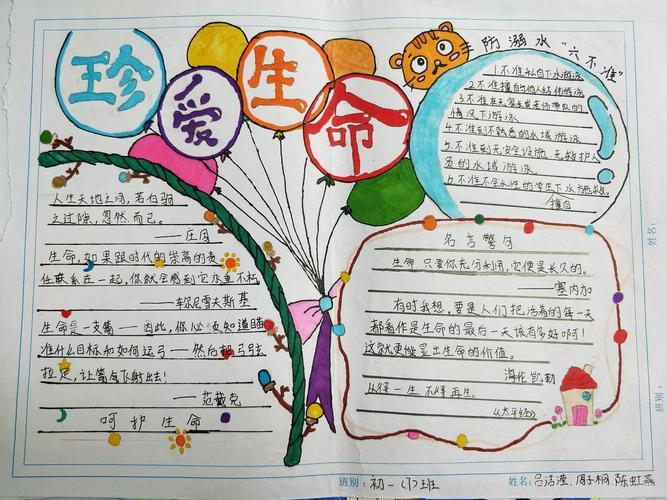 珍爱生命
防溺水"六不准"
1.不准私自下水游泳
2.不准擅自与他人结伴游泳
3.不准在无家长或老师带队的
情况下游泳
4.不准到不熟悉的水域游泳
5.不准到无安全设施、无救护人
员的水域游泳
6.不准不会水性的学生下水施救
擅自
人生天地之间，若白驹
之过隙，忽然而已。
——庄周
生命，如果跟时代的崇高的责
任联系在一起，你就会感到它永垂不朽。
——车尔尼雪夫斯基
生命是一支箭——因此，你必须知道瞄
准什么目标和如何运弓——然后把弓弦
拉足，让箭飞射出去！
——范戴克
呵护生命
名言警句
生命，只要你充分利用，它便是长久的。
——塞内加
有时我想，要是人们把活着的每一天
都看作是生命的最后一天该有多好啊！
这就更能显出生命的价值。
海伦凯勒
人得一生，不得再生。
《太平经》
姓名：
班别：
班别：初一（7）班
姓名：吕洁滢、周子桐、陈虹燕